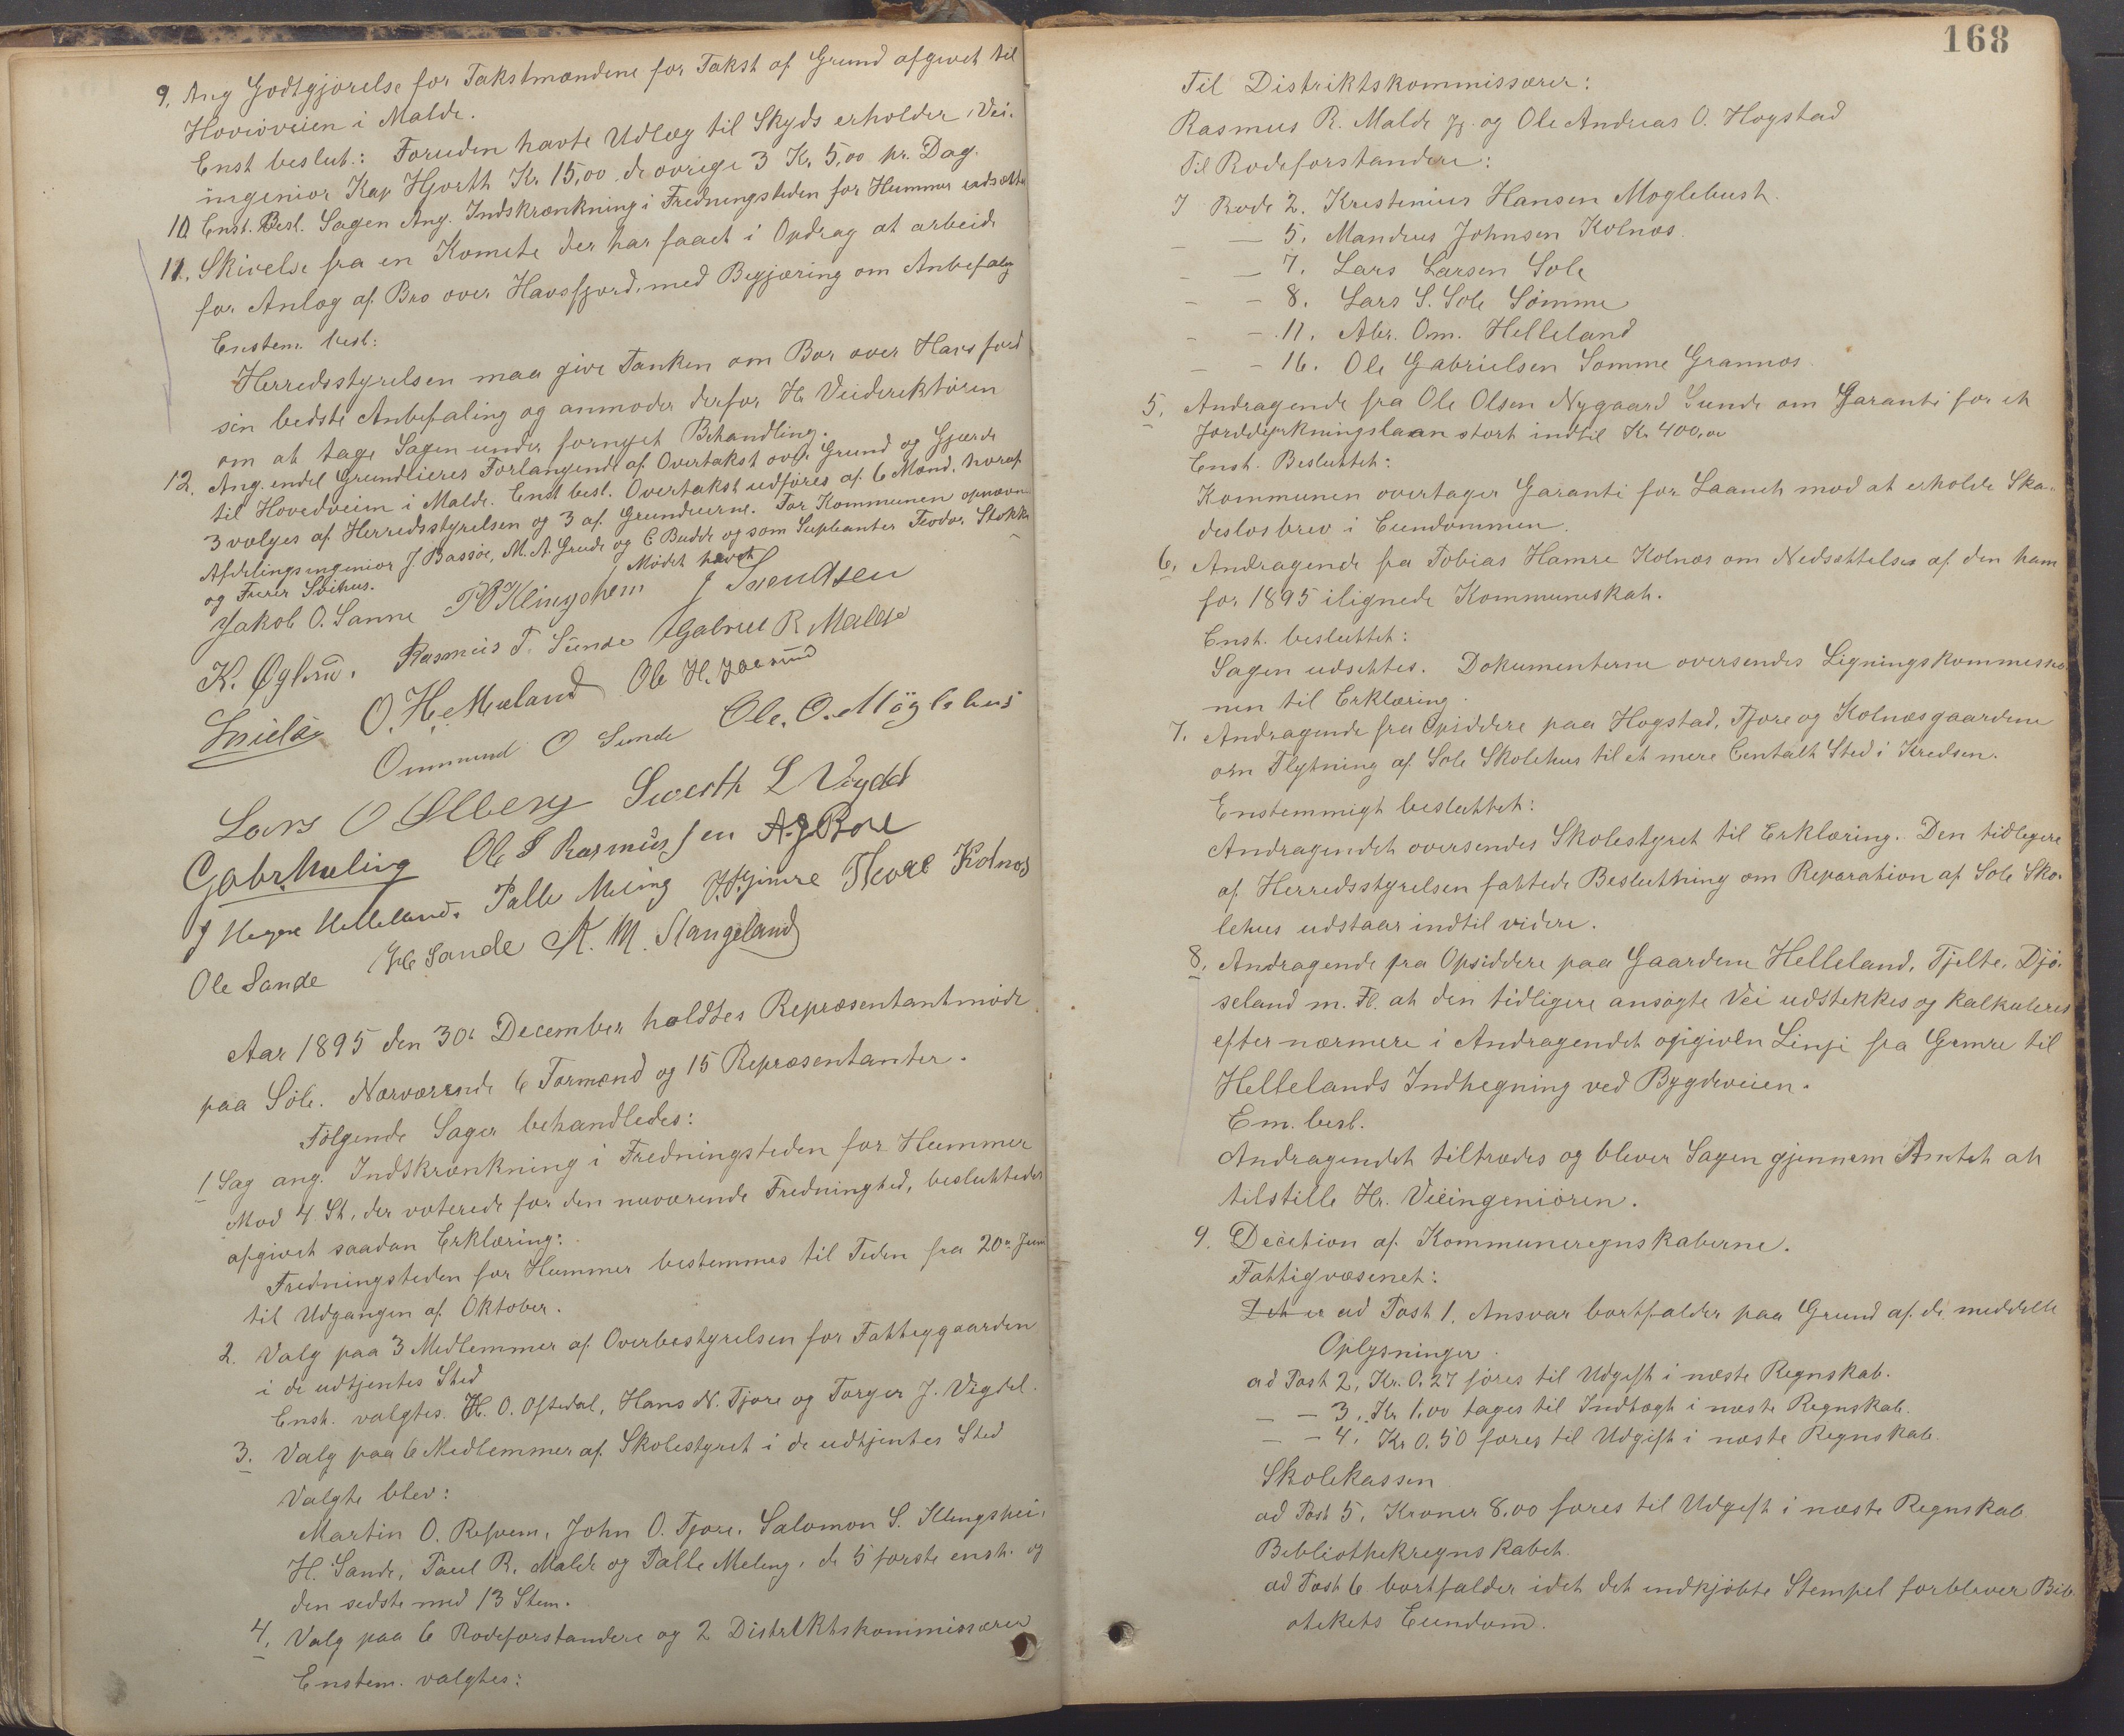 9. Ang Godtgjørelse for Takstmændene for Takst af Grund afgivet til
Hovedveien i Malde.
Enst beslut.: Foruden havte Udlæg til Skyds erholder Vei-
ingeniør Kap Hjorth Kr. 15,00 de øvrige 3 Kr. 5,00 pr. Dag.
10. Enst. Besl. Sagen Ang. Indskrænkning i Fredningstiden for Hummer udsættes
11. Skivelse fra en Komite der har faaet i Opdrag at arbeide
for Anlæg af Bro over Havsfjord, med Begjæring om Anbefaling
Enstem. besl:
Herredsstyrelsen maa give Tanken om Bro over Havsfjord
sin bedste Anbefaling og anmoder derfor Hr Veiderektøren
om at tage Sagen under fornyet Behandling.
12. Ang. endel Grundeieres Forlangende af Overtakst over Grund og Gjærde
til Hovedveien i Malde. Enst besl. Overtakst udføres af 6 Mænd, hvoraf
3 vælges af Herredsstyrelsen og 3 af Grundeierne. For Kommunen opnævn
Afdelingsingeniør J. Bassøe, M. A. Grude og E Budde og som Supleanter Teodor Stokke
og Sørhus. Mødet hævet
Jakob O. Sanne Klingshem J Svendsen
K. Øglænd. Rasmus T. Sunde Gabriel R Malde
O. H. Meeland Ole H.
Ommund O Sunde Ole. O. Möglebus
Lars O Ølberg Sverth L Vigdel
Gabr. Meling Ole S Rasmussen A. J Bore
J Hegre Helleland. Palle Meling Gimre Theore Kolnos
Ole Sande H Sande K. M. Stangeland
Aar 1895 den 30te December holdtes Repræsentantmøde
paa Sole. Nærværende 6 Formænd og 15 Repræsentanter.
Følgende Sager behandledes:
1 Sag ang. Indskrænkning i Fredningstiden for Hummer
Mod 4 St, der voterede for den nuværende Fredningtid, besluttedes
afgivet saadan Erklæring:
Fredningstiden for Hummer bestemmes til Tiden fra 20de Juni
til Udgangen af Oktober.
2. Valg paa 3 Medlemmer af Overbestyrelsen for Fattiggaarden
i de udtjentes Sted
Enst. valgtes H. O. Oftedal, Hans N. Tjore og Torger J. Vigdel.
3. Valg paa 6 Medlemmer af Skolestyret i de udtjentes Sted
Valgte blev:
Martin O. Resvem, John O. Tjore, Salomon S. Klingshei,
H. Sande, Paul R. Malde og Palle Meling, de 5 første enst. og
den sedste med 13 Stem.
4. Valg paa 6 Rodeforstandere og 2 Distriktskommissærer
Enstem. valgtes:
168
Til Distriktskommissærer:
Rasmus R. Malde jr. og Ole Andreas O. Hogstad
Til Rodeforstandere:
I Rode 2. Kristenius Hansen Møglebust.
— — 5. Mandius Johnsen Kolnæs.
— — 7. Lars Larsen Sole
— — 8. Lars S. Sole Sömme
— — 11. Abr. Om. Helleland
— — 16. Ole Gabrielsen Sømme Grannæs.
5. Andragende fra Ole Olsen Nygaard Sunde om Garanti for et
Jorddyrkningslaan stort indtil Kr 400,00
Enst. Besluttet:
Kommunen overtager Garanti for Laanet mod at erholde Ska-
desløsbrev i Eiendommen.
6. Andragende fra Tobias Hamre Kolnæs om Nedsættelse af den ham
for 1895 ilignede Kommuneskat.
Enst. besluttet:
Sagen udsættes. Dokumenterne oversendes Ligningskommissio
nen til Erklæring.
7. Andragende fra Opsiddere paa Hogstad, Tjore og Kolnæsgaardene
om Flytning af Sole Skolehus til et mere Centalt Sted i Kredsen.
Enstemmigt besluttet:
Andragendet oversendes Skolestyret til Erklæring. Den tidligere
af Herredsstyrelsen fattede Beslutning om Reparation af Sole Sko-
lehus udstaar indtil videre.
8. Andragende fra Opsiddere paa Gaardene Helleland, Tjelte, Djø-
seland m. Fl. at den tidligere ansøgte Vei udstekkes og kalkuleres
efter nærmere i Andragendet opgiven Linje fra Gimre til
Hellelands Indhegning ved Bygdeveien.
Em. besl.
Andragendet tiltrædes og bliver Sagen gjennem Amtet at
tilstille Hr. Veiingeniøren.
9. Decition af Kommuneregnskaberne.
Fattigvæsenet:
Det er ad Post 1. Ansvar bortfalder paa Grund af de meddelte
Oplysninger.
ad Post 2, Kr. 0,27 føres til Udgift i næste Regnskab.
— — 3, Kr 1,00 tages til Indtægt i næste Regnskab.
— — 4. Kr 0,50 føres til Udgift i næste Regnskab.
Skolekassen
ad Post 5, Kroner 8,00 føres til Udgift i næste Regnskab.
Bibliothekregnskabet.
ad Post 6 bortfalder idet det indkjøbte Stempel forbliver Bibli
otekets Eiendom.